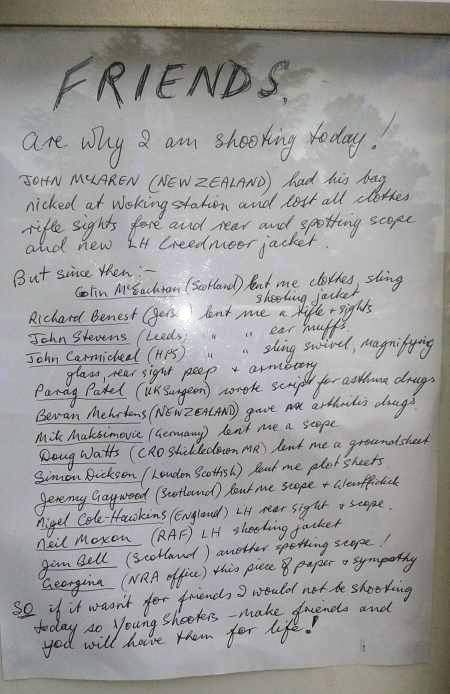 FRIENDS.
are why I am shooting today!
JOHN McLAREN (NEW ZEALAND) had his bag
nicked at Woking station and lost all clothes
rifle sights fore and rear and spotting scope
and new LH Creedmoor jacket.
But since then :-
Colin McEachran (Scotland) lent me clothes, sling
shooting jacket
Richard Benest (Jersey) lent me a rifle + sights
John Stevens (Leeds) " " ear muffs
John Carmichael (HPS) " " sling swivel, magnifying
glass, rear sight peep + armoury
Parag Patel (UK Surgeon) wrote script for asthma drugs
Bevan Mehrtens (NEW ZEALAND) gave me arthritis drugs.
Mik Maksimovic (Germany) lent me a scope
Doug Watts (CRO Stickledown MR) lent me a groundsheet
Simon Dickson (London Scottish) lent me plot sheets
Jeremy Gaywood (Scotland) lent me scope + Glenfiddich
Nigel Cole-Hawkins (England) LH rear sight + scope.
Neil Moxon (RAF) LH shooting jacket
Jim Bell (Scotland) another spotting scope!
Georgina (NRA office) this piece of paper + sympathy
SO if it wasn't for friends I would not be shooting
today so Young Shooters - make friends and
you will have them for life!